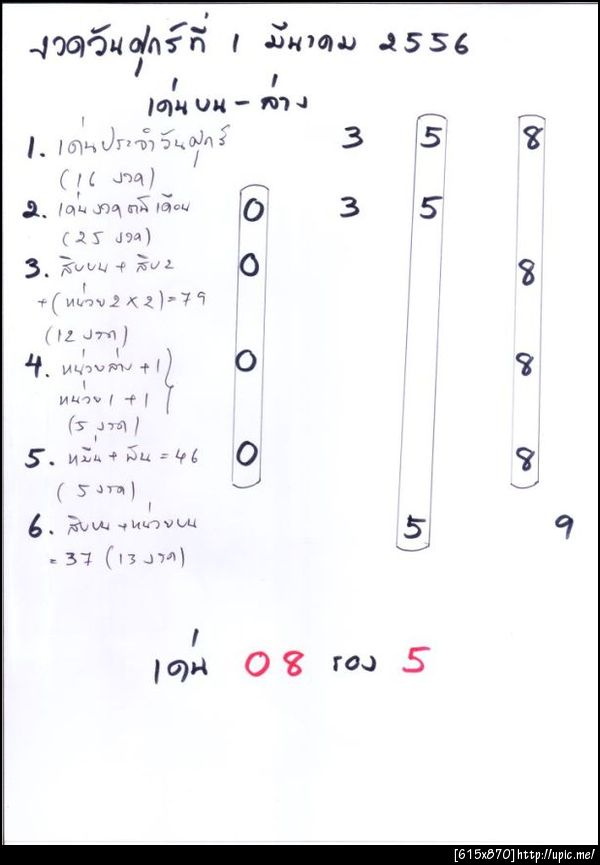 งวดวันศุกร์ที่ 1 มีนาคม 2556
เด่นบน - ล่าง
1. เด่นประจำวันศุกร์ 3 5 8
(16 งวด)
2. เด่นงวดต้นเดือน 0 3 5
(25 งวด)
3. สิบบน + สิบ2 0 8
+ (หน่วย2 x 2) = 79
(12 งวด)
4. หน่วยล่าง + 1 0 8
หน่วย1 + 1
(5 งวด)
5. หมื่น + พัน = 46 0 8
(5 งวด)
6. สิบบน + หน่วยบน 5 9
= 37 (13 งวด)
เด่น 08 รอง 5
[615x870]http://upic.me/